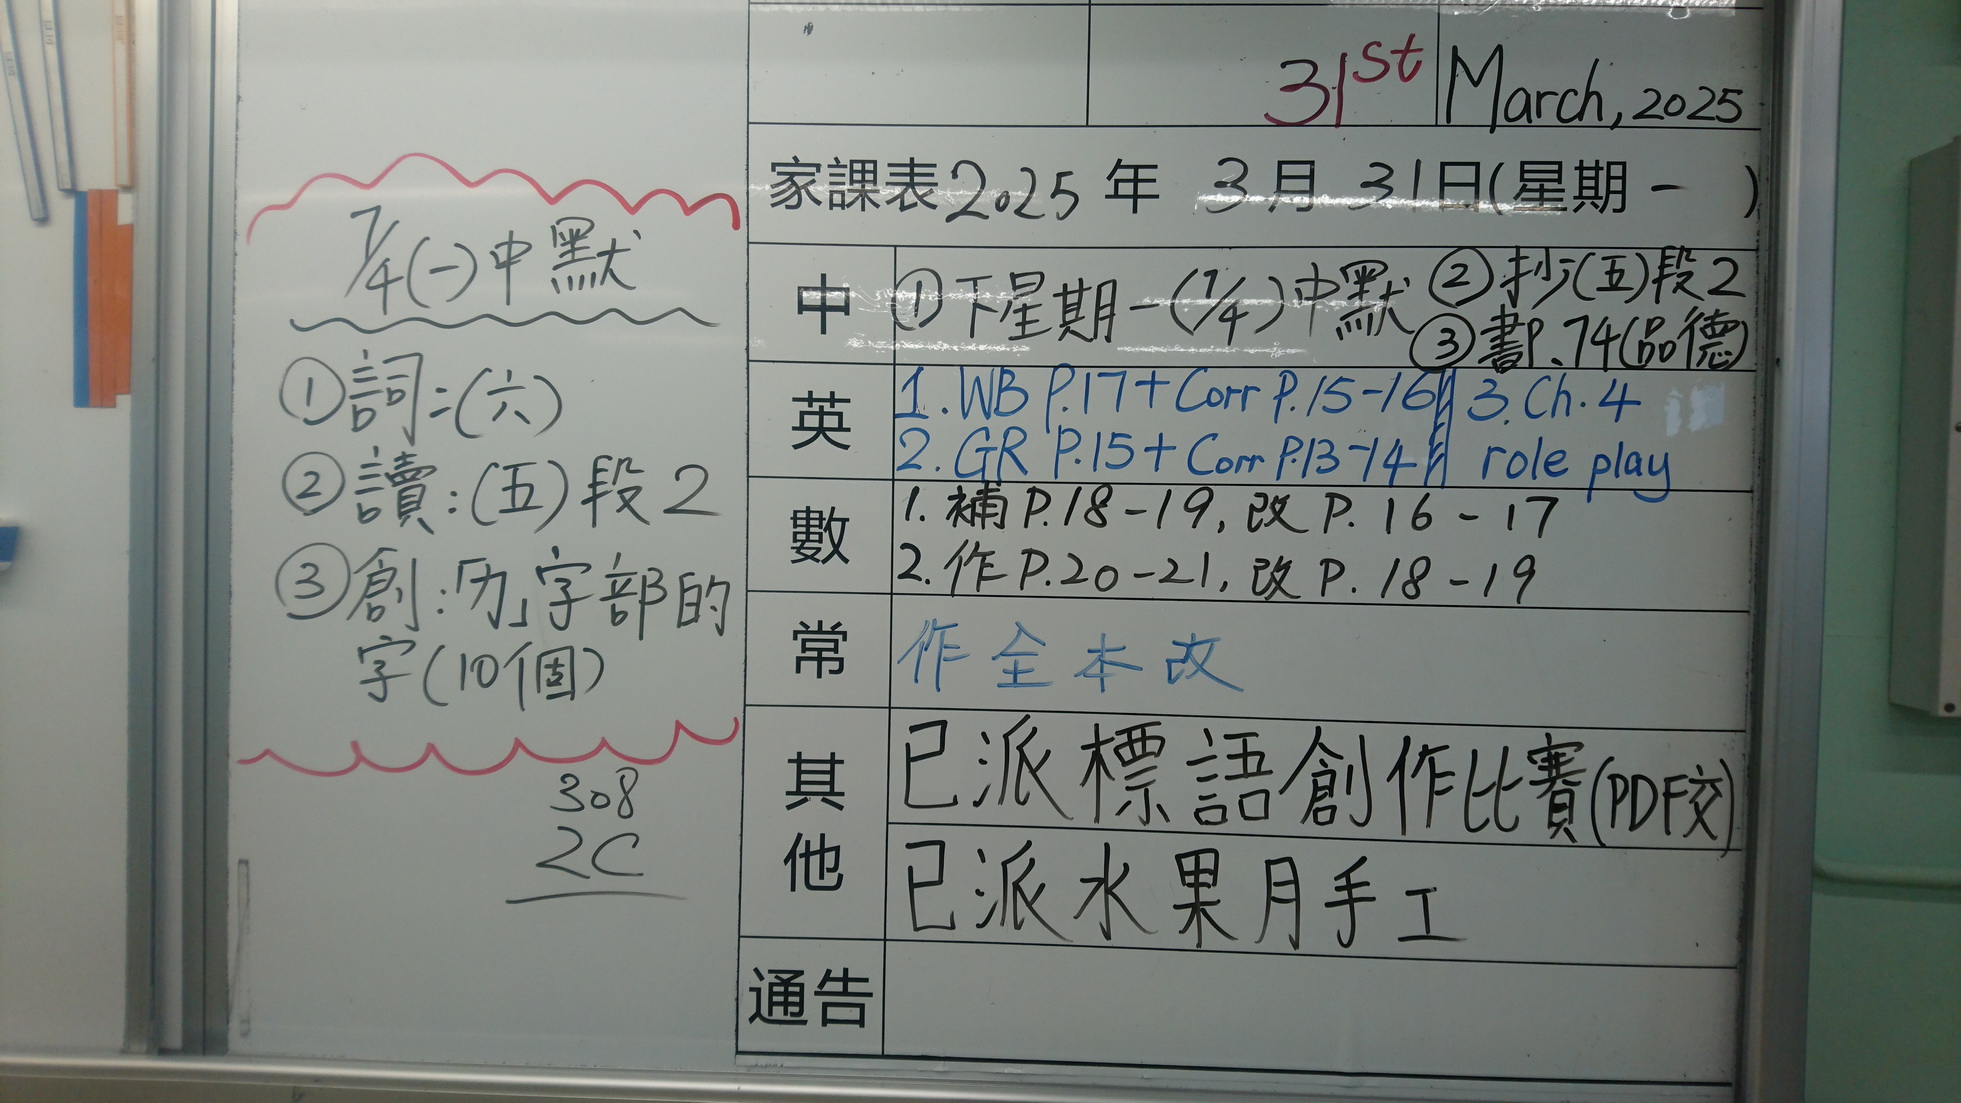 31st March, 2025
家課表2025年 3月 31日(星期一 )
中 ①下星期一(7/4)中默 ②抄(五)段2
③劃P.74(品德)
英 1. WB P.17+Corr P.15-16 3. Ch.4
2. GR P.15+Corr P.13-14 role play
數 1. 補P.18-19, 改P. 16-17
2. 作P.20-21, 改P. 18-19
常 作全本改
其他 已派標語創作比賽(PDF交)
已派水果月手工
通告
7/4(一)中默
①詞:(六)
②讀:(五)段2
③創:「力」字部的
字(10個)
308
2C